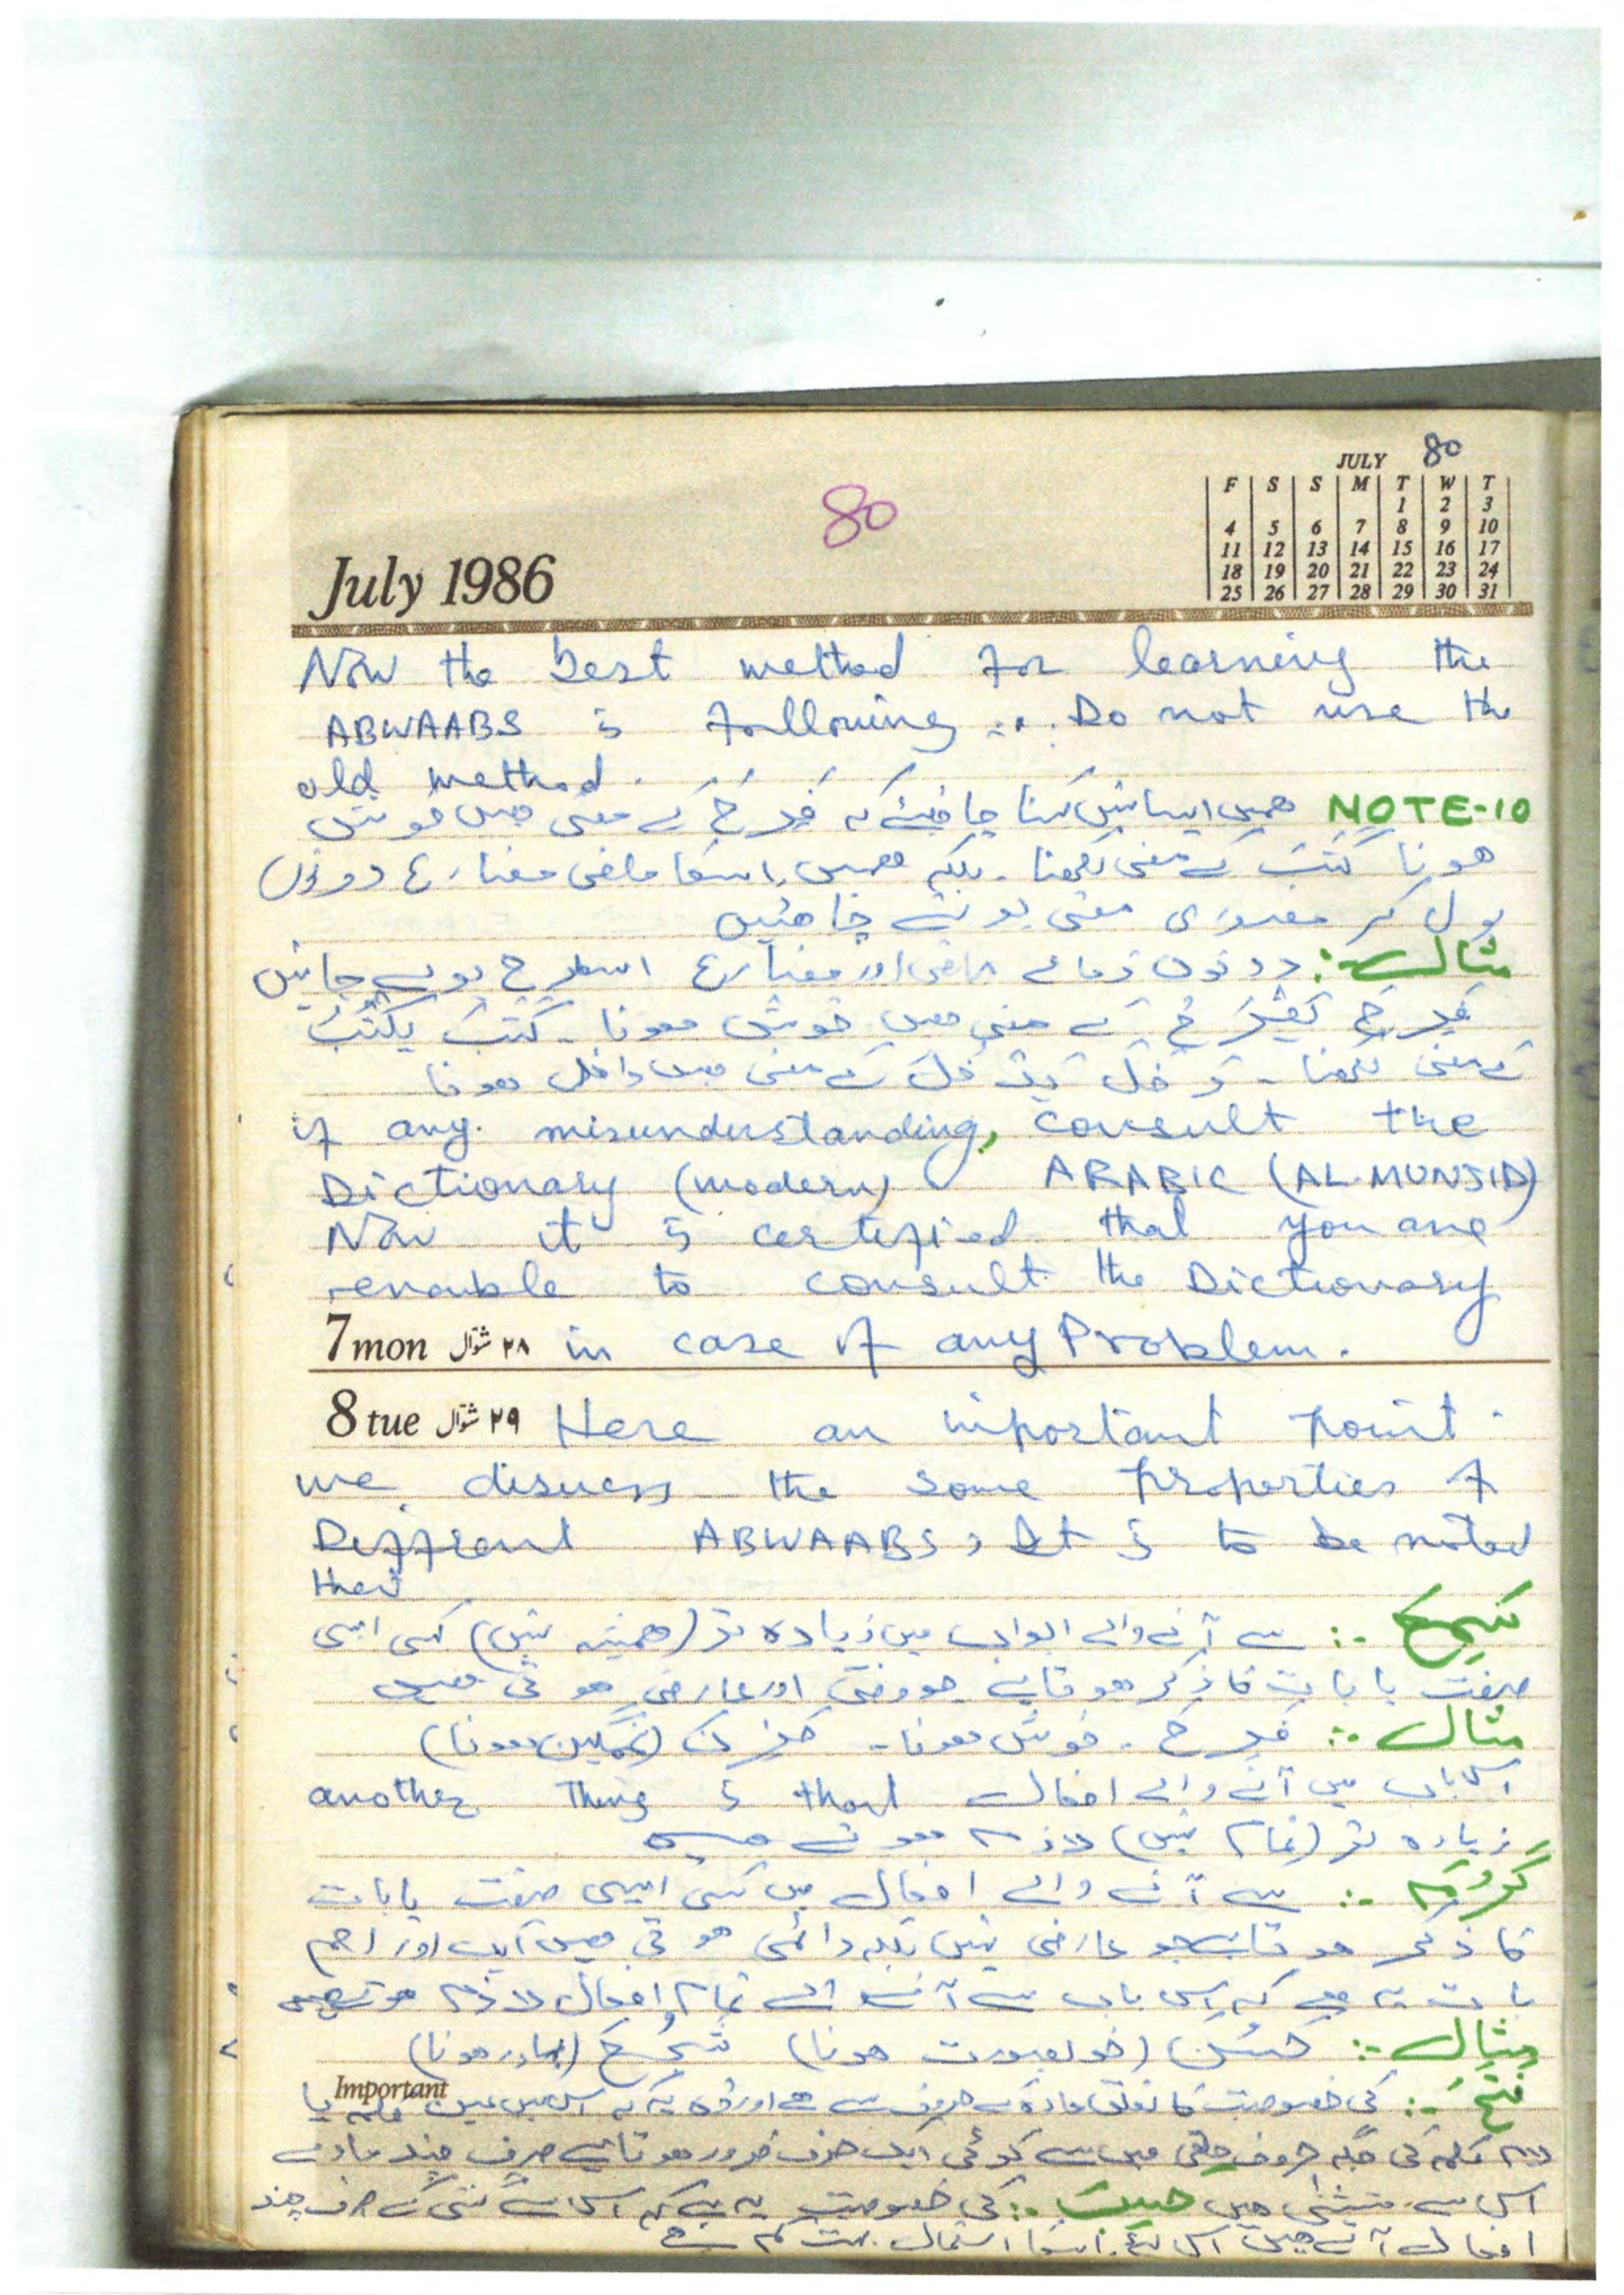 80
JULY
80
F S S M T W T
1 2 3
4 5 6 7 8 9 10
11 12 13 14 15 16 17
18 19 20 21 22 23 24
25 26 27 28 29 30 31
July 1986
Now the best method for learning the
ABWAABS is following ... Do not use the
old method.
NOTE-10 ھمیں ایسا نہیں کہنا چاہیئے کہ فَرِحَ کے معنی ھیں خوش
ھونا کَتَبَ کے معنی لکھنا۔ بلکہ ھمیں اسکا ماضی مضارع دونوں
بول کر مصدری معنی بولنے چاھئیں
مثال :. دونوں زمانے ماضی اور مضارع اسطرح بولے جائیں
فَرِحَ یَفْرَحُ کے معنی ھیں خوش ھونا۔ کَتَبَ یَکْتُبُ
کے معنی لکھنا۔ دَخَلَ یَدْخُلُ کے معنی ھیں داخل ھونا
if any misunderstanding, consult the
Dictionary (modern) ARABIC (AL-MUNJID)
Now it is certified that you are
enable to consult the Dictionary
7 mon ۲۸ شوّال in case of any Problem.
8 tue ۲۹ شوّال Here an important point
we discuss the some properties of
Different ABWAABS, It is to be noted
that
سَمِعَ :. سے آنے والے ابواب میں زیادہ تر (ھمیشہ نہیں) کسی ایسی
صفت یا بات کا ذکر ھوتا ہے جو وقتی اور عارضی ھوتی ھیں
مثال :. فَرِحَ۔ خوش ھونا۔ حَزِنَ (غمگین ھونا)
another thing is that اس باب میں آنے والے افعال
زیادہ تر (تمام نہیں) لازم ھوتے ھیں
کَرُمَ :. سے آنے والے افعال میں کسی ایسی صفت یا بات
کا ذکر ھوتا ہے جو عارضی نہیں بلکہ دائمی ھوتی ھیں ایک اور اھم
بات یہ ھے کہ اس باب سے آنے والے تمام افعال لازم ھوتے ھیں
مثال :. حَسُنَ (خوبصورت ھونا) شَجُعَ (بہادر ھونا)
Important
فَتَحَ :. کی خصوصیت کا تعلق مادہ کے حروف سے ھے اور وہ یہ کہ اس میں عین کلمہ یا
لام کلمہ کی جگہ حروف حلقی میں سے کوئی ایک حرف ضرور ھوتا ہے صرف چند مادے
اس سے مستثنٰی ھیں حَسِبَ :. کی خصوصیت یہ ہے کہ اس سے گنتی کے صرف چند
افعال آتے ھیں اس لئے اسکا استعمال بہت کم ھے